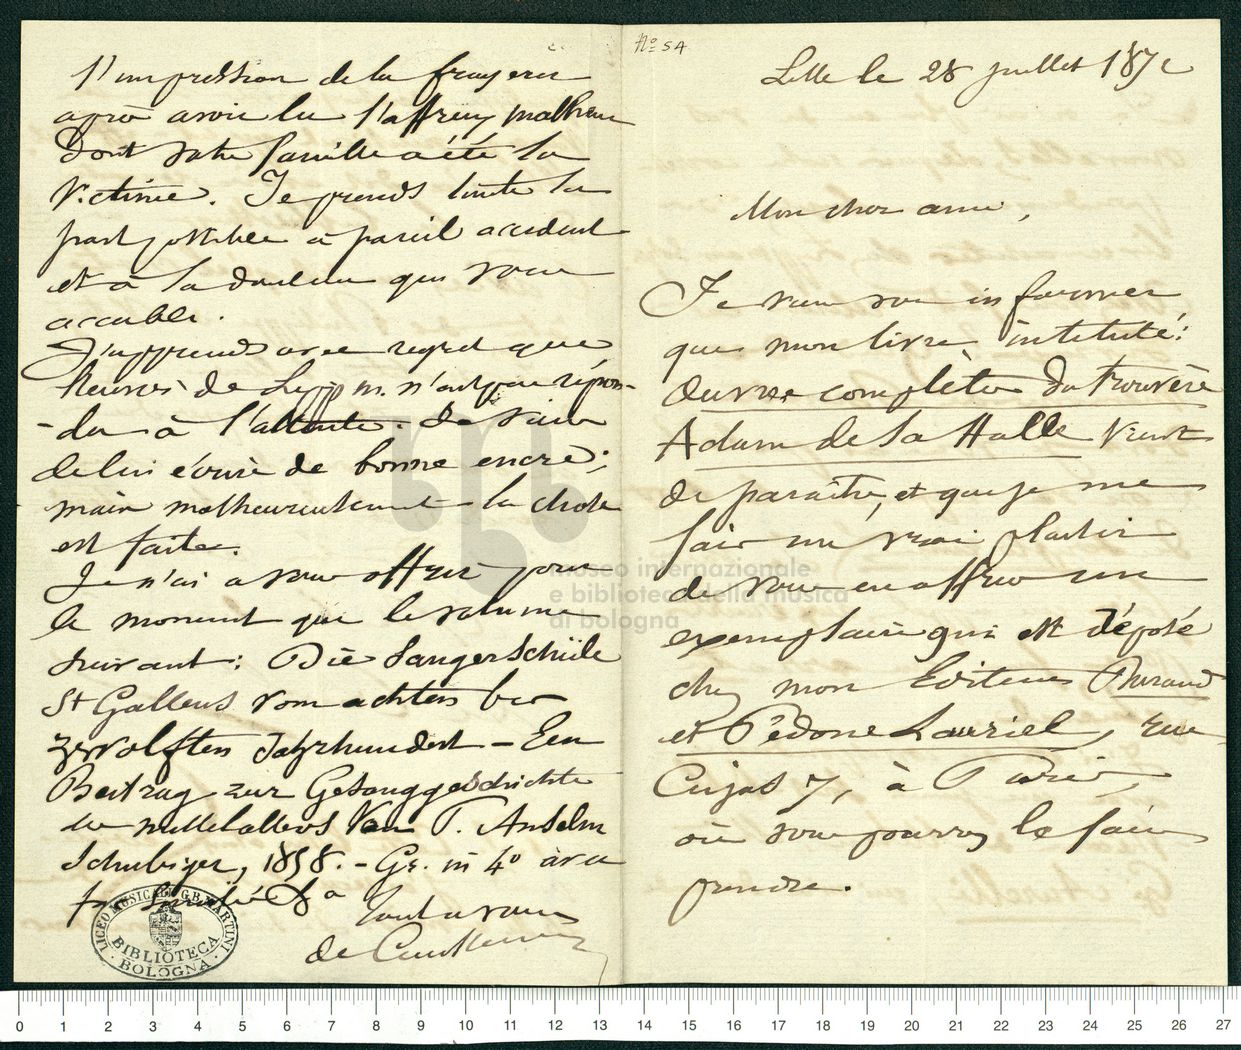 No 54
Lille le 28 juillet 1872
Mon cher ami,
Je viens vous informer
que mon livre intitulé:
Œuvres complètes du trouvère
Adam de la Halle vient
de paraître, et que je me
fais un vrai plaisir
de vous en offrir un
exemplaire qui est déposé
chez mon Editeur Durand
et Pédone Lauriel, rue
Cujas 7, à Paris,
où vous pouvez le faire
prendre.
l'impression de la frayeur
après avoir lu l'affreux malheur
dont votre famille a été la
victime. Je prends toute la
part possible à pareil accident
et à la douleur qui vous
accable.
J'apprends avec regret que
de m. n'ont pas répon-
-du à l'attente. Je viens
de lui écrire de bonne encre;
mais malheureusement la chose
est faite.
Je n'ai a vous offrir pour
le moment que le volume
suivant: Die Sangerschüle
St Gallens vom achten bis
zwolften Jahrhundert - Ein
Beitrag zur Gesanggeschichte
des mittelalters Von P. Anselm
Schubiger, 1858. - Gr. in 4o avec
Tout a vous
de Coussemaker
LICEO MUSICALE G.B. MARTINI
BIBLIOTECA
BOLOGNA
museo internazionale
e biblioteca della musica
di bologna
0 1 2 3 4 5 6 7 8 9 10 11 12 13 14 15 16 17 18 19 20 21 22 23 24 25 26 27